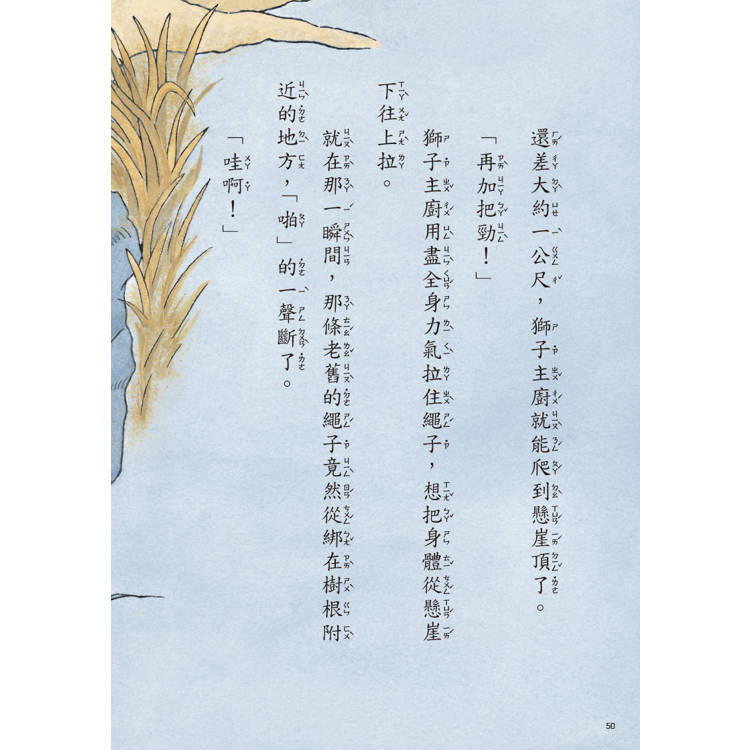 還差大約一公尺，獅子主廚就能爬到懸崖頂了。
「再加把勁！」
獅子主廚用盡全身力氣拉住繩子，想把身體從懸崖
下往上拉。
就在那一瞬間，那條老舊的繩子竟然從綁在樹根附
近的地方，「啪」的一聲斷了。
「哇啊！」
50